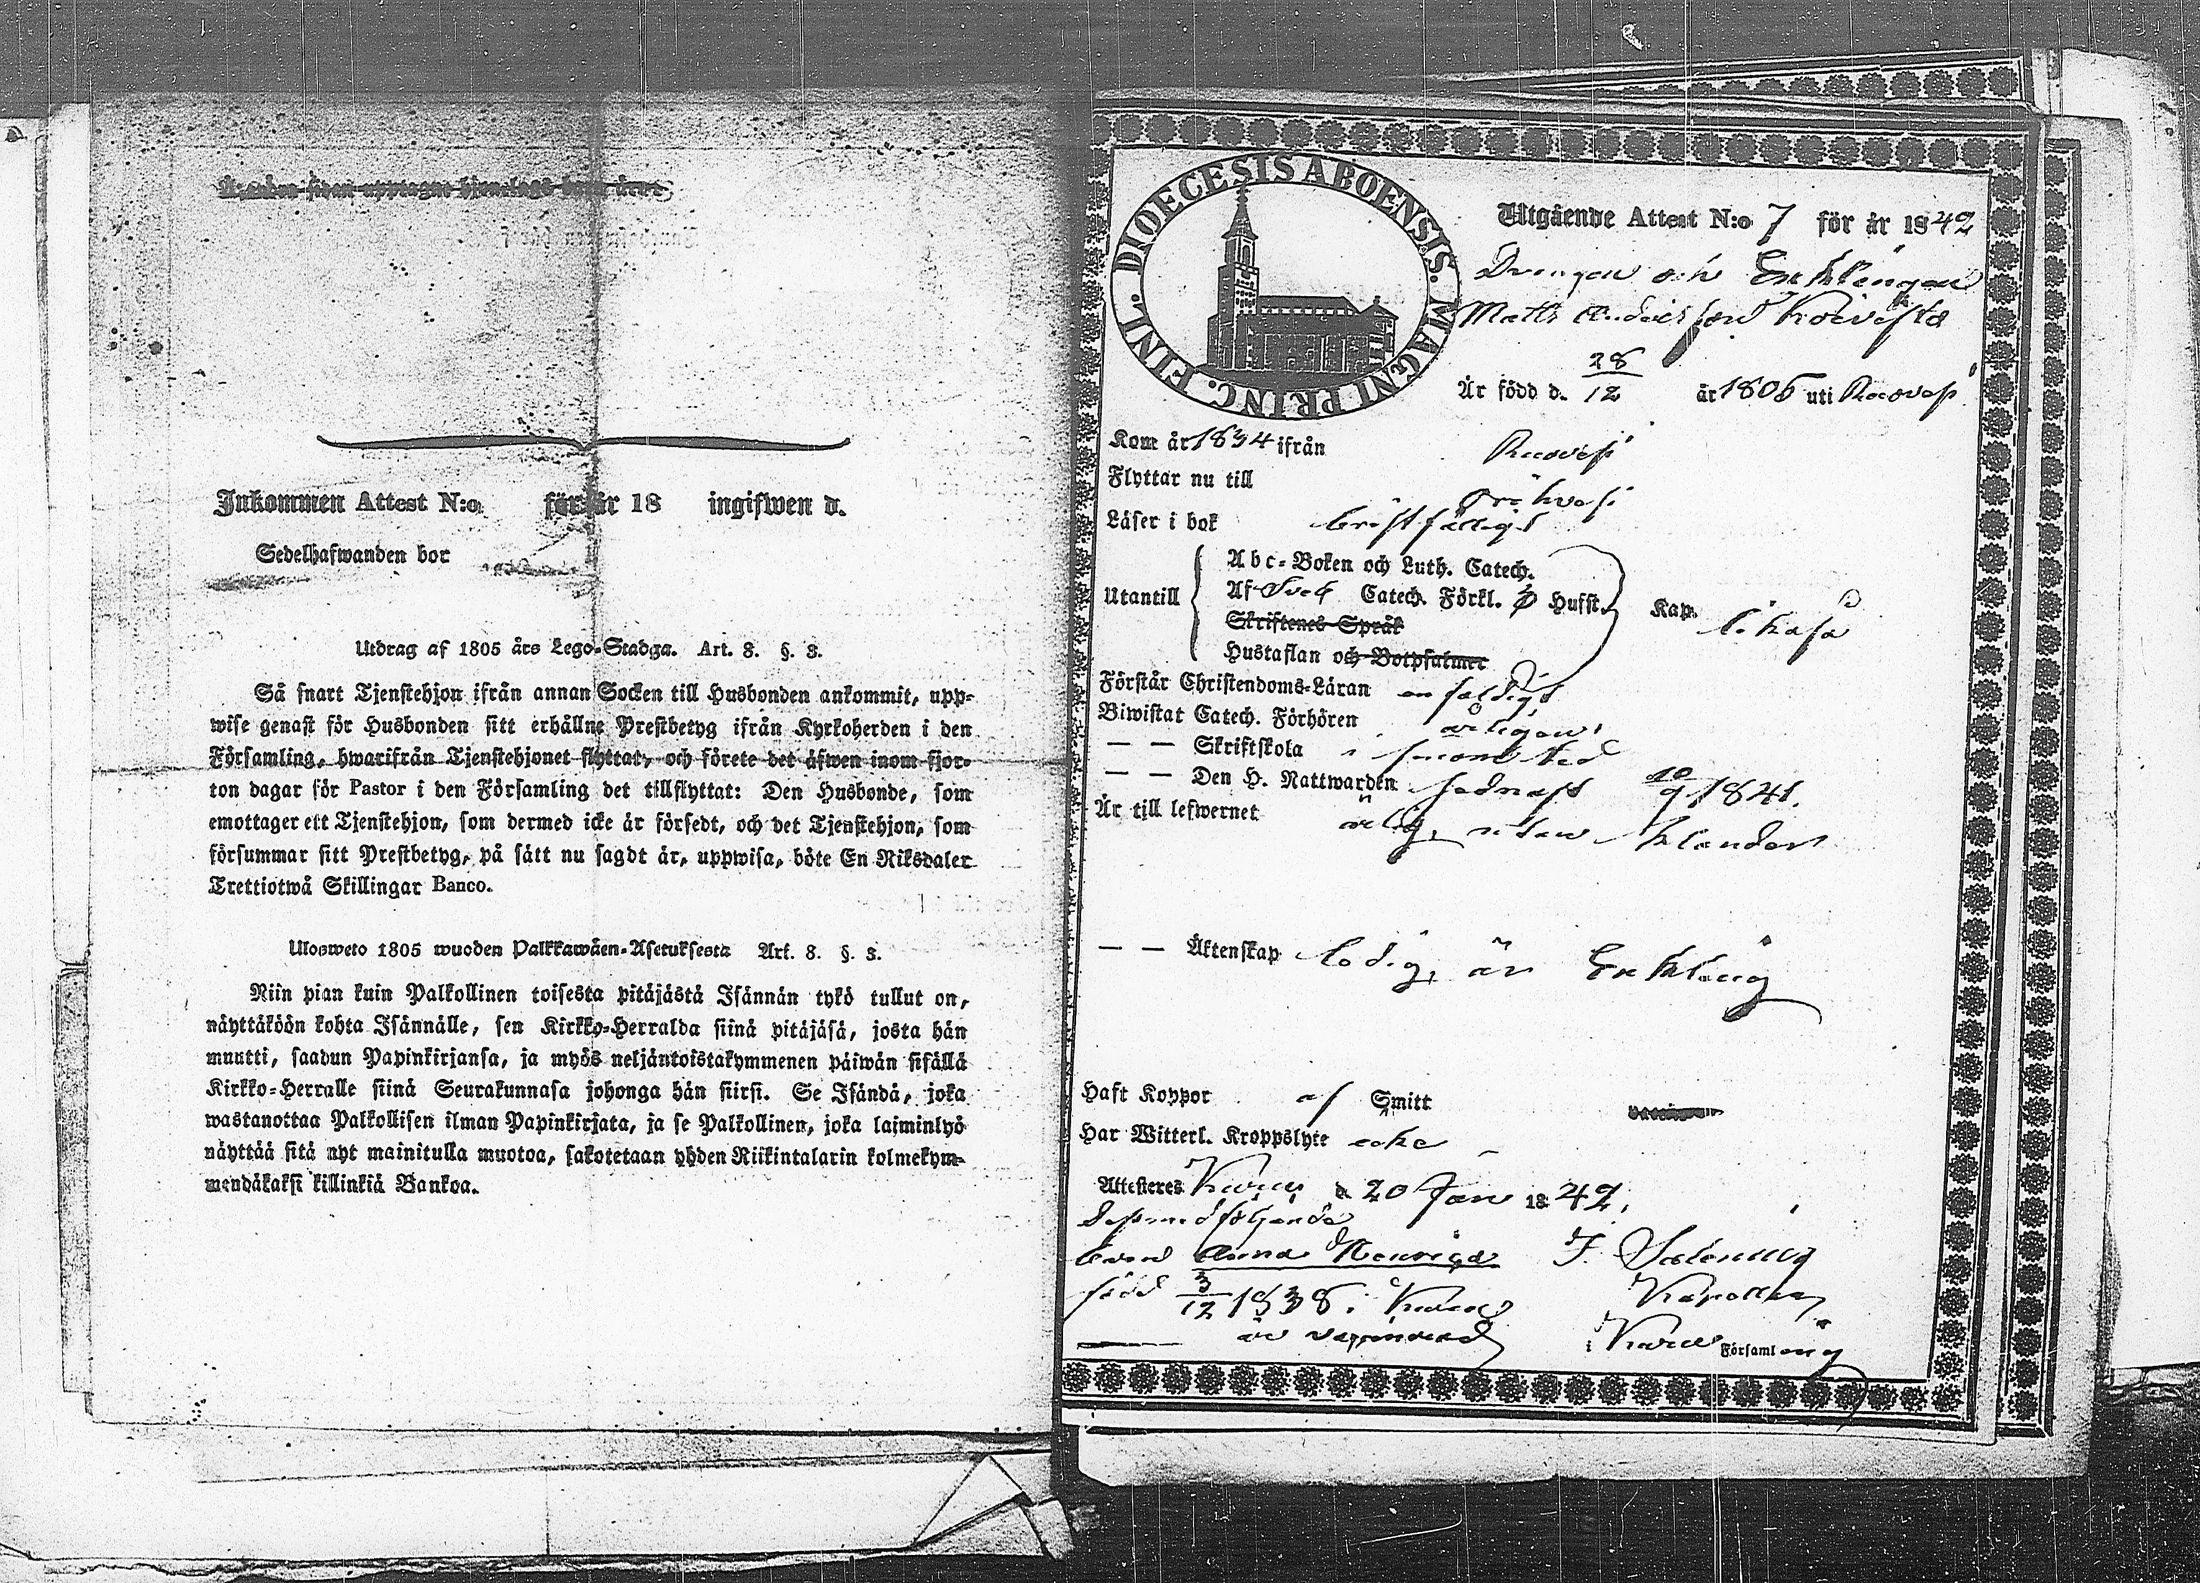 Inkommen Attest N:o för år 18 ingifwen d.
Sedelhafwanden bor
Utdrag af 1805 års Lego-Stadga. Art. 8. §. 3.
Så snart Tjenstehjon ifrån annan Socken till Husbonden ankommit, upp-
wise genast för Husbonden sitt erhållne Prestbetyg ifrån Kyrkoherden i den
Församling, hwarifrån Tjenstehjonet flyttat, och förete det äfwen inom fjor-
ton dagar för Pastor i den Församling det tillflyttat: Den Husbonde, som
emottager ett Tjenstehjon, som dermed icke är försedt, och det Tjenstehjon, som
försummar sitt Prestbetyg, på sätt nu sagdt är, uppwisa, böte En Riksdaler
Trettiotwå Skillingar Banco.
Ulosweto 1805 wuoden Palkkawäen-Asetuksesta Art. 8. §. 3.
Niin pian kuin Palkollinen toisesta pitäjästä Isännän tykö tullut on,
näyttäköön kohta Isännälle, sen Kirkko-Herralda siinä pitäjäsä, josta hän
muutti, saadun Papinkirjansa, ja myös neljäntoistakymmenen päiwän sisällä
Kirkko-Herralle siinä Seurakunnasa johonga hän siirsi. Se Isändä, joka
wastanottaa Palkollisen ilman Papinkirjata, ja se Palkollinen, joka laiminlyö
näyttää sitä nyt mainitulla muotoa, sakotetaan yhden Riikintalarin kolmekym-
mendäkaksi killinkiä Bankoa.
DIOECESIS ABOENSIS. MAGNI PRINC. FINL.
Utgående Attest N:o 7 för år 1842
Drengen och Enklingen
Matts Andersson Koivisto
Är född d. 28/12 år 1806 uti Ruovesi
Kom år 1834 ifrån Ruovesi
Flyttar nu till Orihvesi
Läser i bok bristfälligt
Utantill
Abc-Boken och Luth. Catech.
Af Sveb Catech. Förkl. Hufst. Kap.
Skriftenes Språk
Hustaflan och Botpsalmer
Förstår Christendoms-Läran enfaldigt
Biwistat Catech. Förhören årligen
— — Skriftskola i
— — Den H. Nattwarden sednast 10/9 1841.
Är till lefwernet ärlig, utan klander
— — Äktenskap ledig, är Enkling
Haft Koppor af Smitt
Har Witterl. Kroppslyte icke
Attesteras Kuru d. 20 Jan 1842.
Dess medföljande
barn Anna Henrica
född 3/12 1838 i Kuru
är vaccinerad
J. Salenius
Kapellan
i Kuru Församling